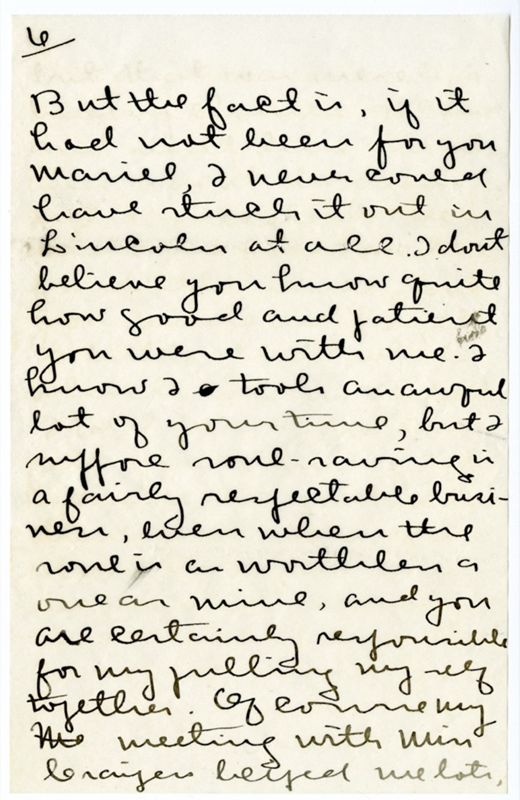 6
But the fact is, if it
had not been for you
Mariel, I never could
have stuck it out in
Lincoln at all. I dont
believe you know quite
how good and patient
you were with me. I
know I took an awful
lot of your time, but I
suppose soul-saving is
a fairly respectable busi-
ness, even when the
soul is as worthless a
one as mine, and you
are certainly responsible
for my pulling myself
together. Of course my
meeting with Miss
helped me lots,